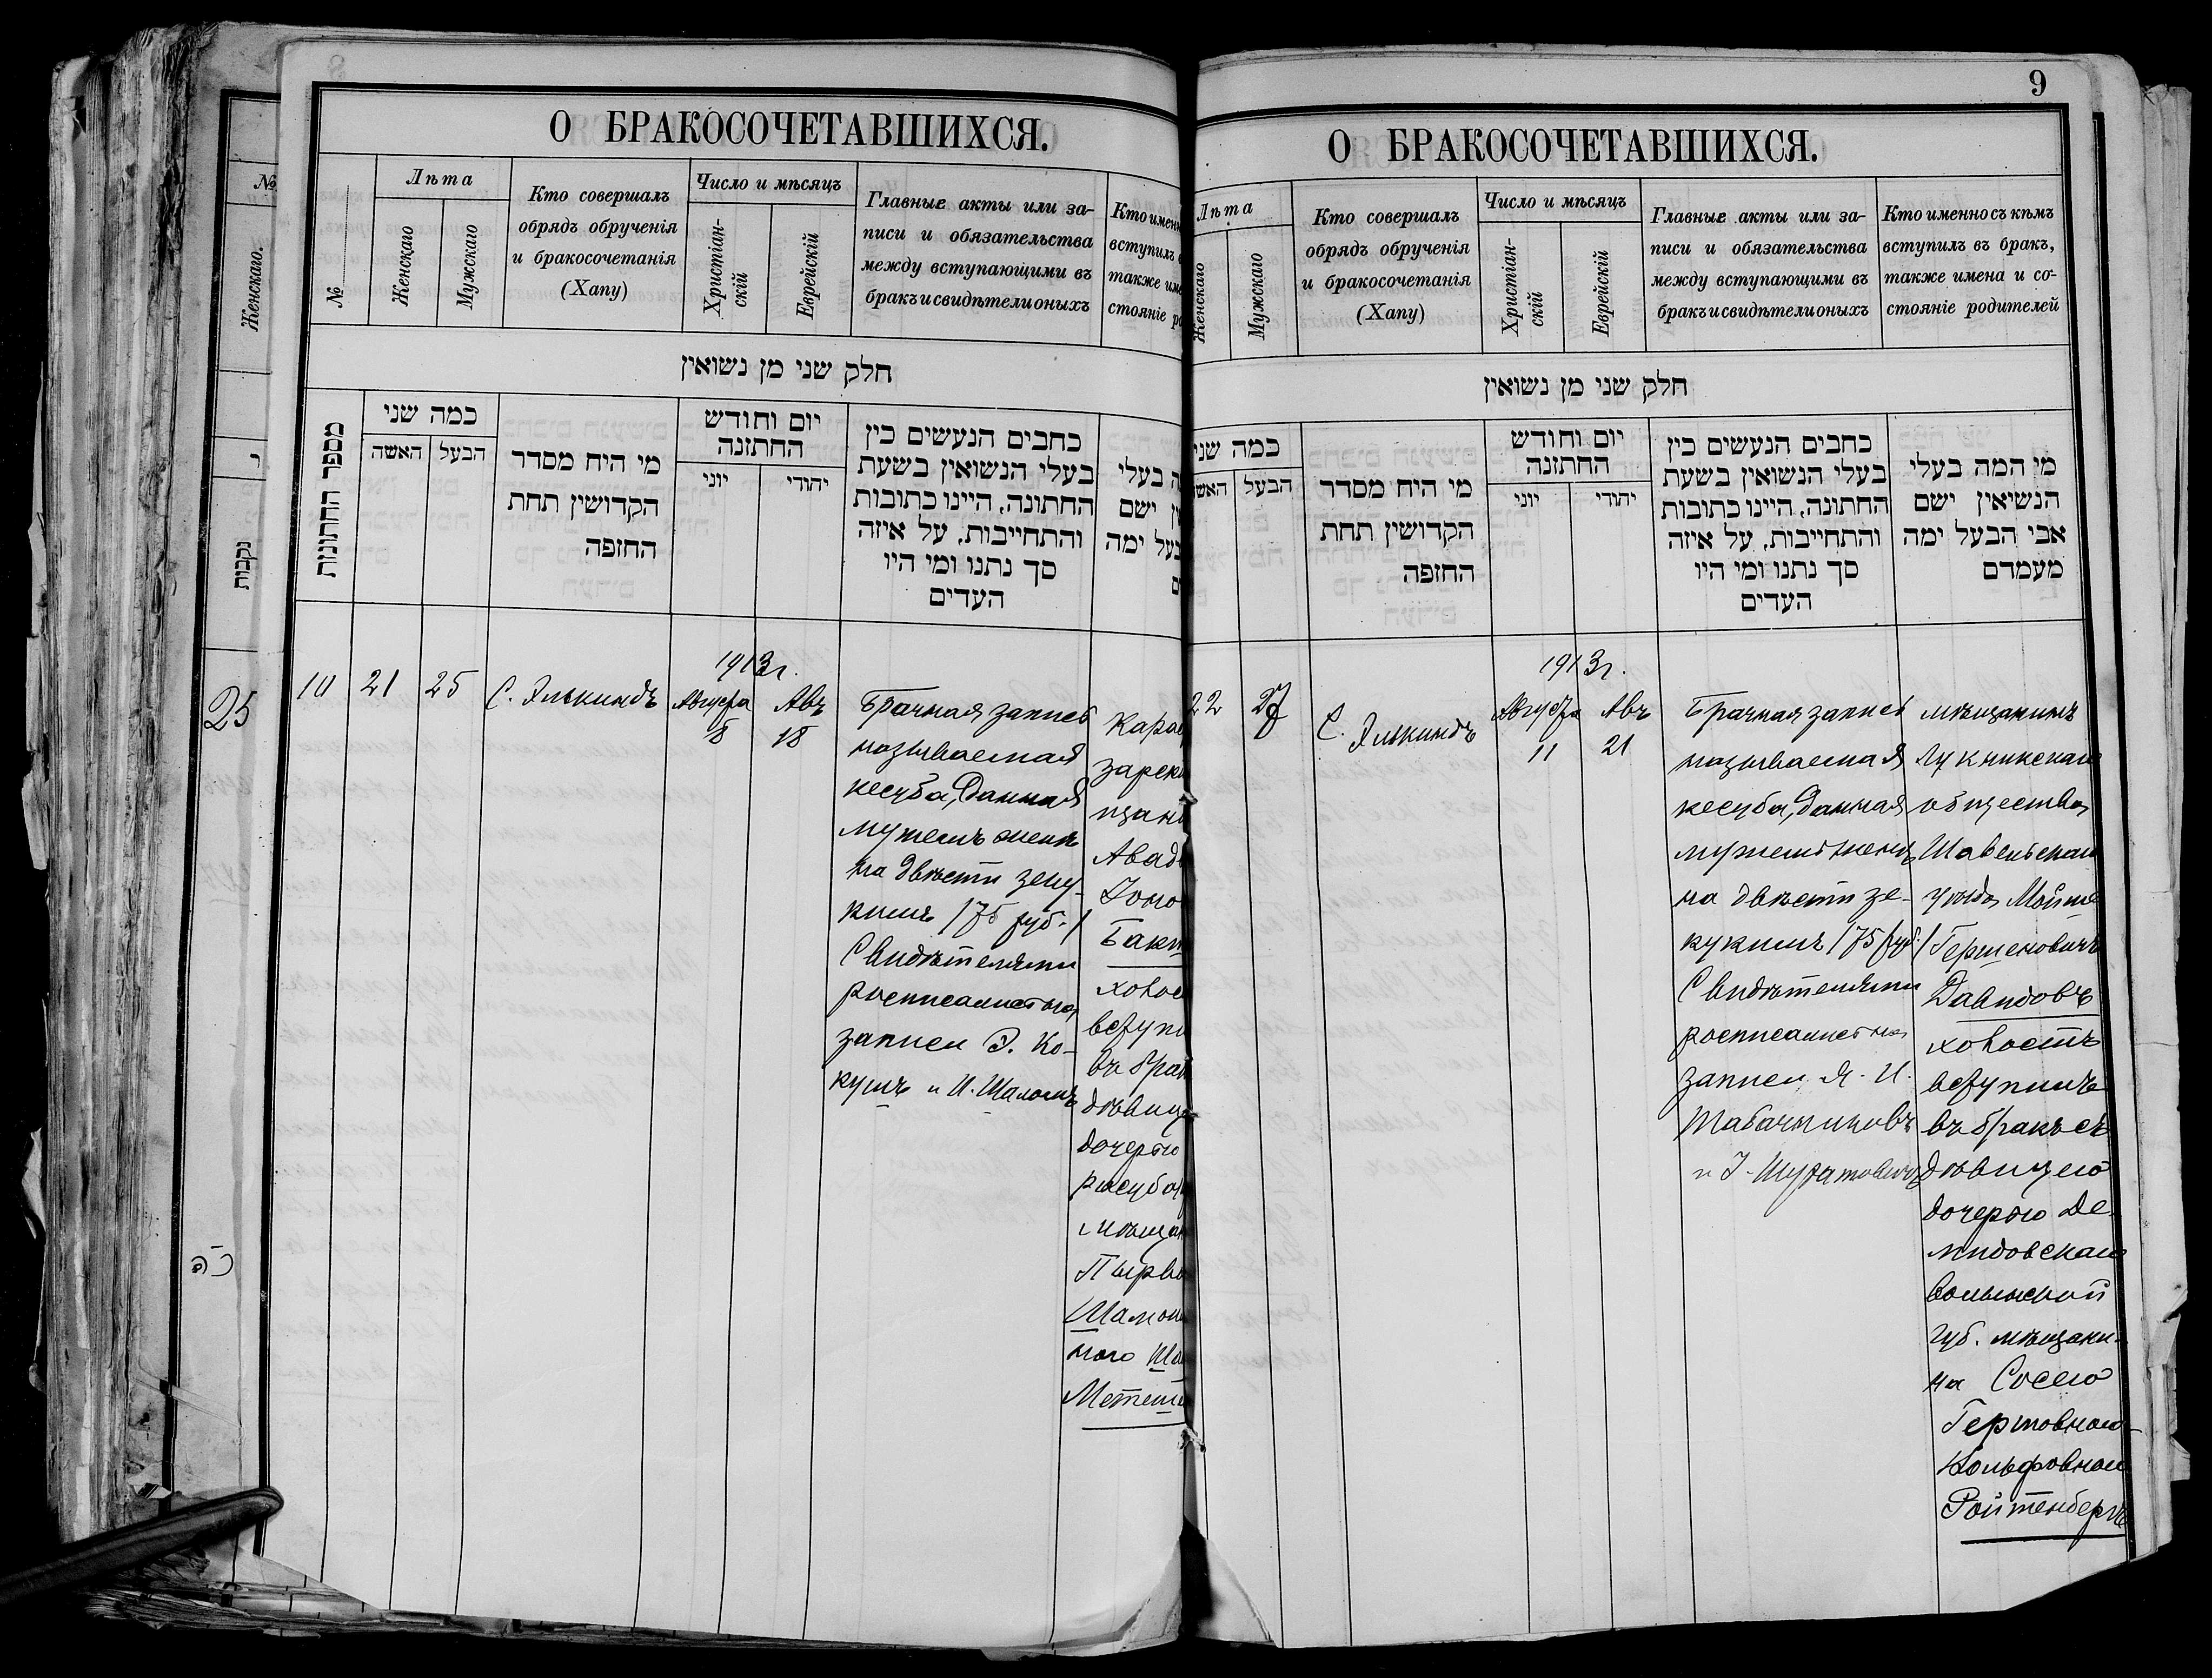 О БРАКОСОЧЕТАВШИХСЯ.
№
Лѣта
Женскаго
Мужскаго
Кто совершалъ
обрядъ обрученія
и бракосочетанія
(Хапу)
Число и мѣсяцъ
Христіан-
скій
Еврейскій
Главные акты или за-
писи и обязательства
между вступающими въ
бракъ и свидѣтели оныхъ
Кто имен
вступилъ
также им
стояніе р
חלק שני מן נשואין
מספר החתונות
כמה שני
האשה
הבעל
מי היח מסדר
הקדושין תחת
החזפה
יום וחודש
החתזנה
יוני
יהודי
כתבים הנעשים כין
בעלי הנשואין בשעת
החתונה, היינו כתובות
והתחייבות, על איזה
סך נתנו ומי היו
העדים
בעלי
ישם
בעל ימה
10
21
25
С. Элькиндъ
1913г.
Августа
8
Авъ
18
Брачная запись
называемая
кесуба, данная
мужемъ женѣ
на двѣсти зеку-
кимъ /75 руб./
Свидѣтелями
росписались на
записи Э. Ко-
кушъ и И. Шаломъ
зарск
щани
Авад
Бакш
холос
вступи
въ бра
дѣвице
дочерью
мѣщан
Шамо
9
О БРАКОСОЧЕТАВШИХСЯ.
Лѣта
Женскаго
Мужскаго
Кто совершалъ
обрядъ обрученія
и бракосочетанія
(Хапу)
Число и мѣсяцъ
Христіан-
скій
Еврейскій
Главные акты или за-
писи и обязательства
между вступающими въ
бракъ и свидѣтели оныхъ
Кто именно съ кѣмъ
вступилъ въ бракъ,
также имена и со-
стояніе родителей
חלק שני מן נשואין
כמה שני
האש
הבעל
מי היח מסדר
הקדושין תחת
החזפה
יום וחודש
החתזנה
יוני
יהודי
כתבים הנעשים כין
בעלי הנשואין בשעת
החתונה, היינו כתובות
והתחייבות, על איזה
סך נתנו ומי היו
העדים
מי המה בעלי
הנשיאין ישם
אבי הבעל ימה
מעמדם
22
27
С. Элькиндъ
1913г.
Августа
11
Авъ
21
Брачная запись
называемая
кесуба, данная
мужемъ женѣ
на двѣсти зе-
кукимъ /75 руб./
Свидѣтелями
росписались на
записи Я. И.
Табачниковъ
и І. Шуратовичъ
мѣщанинъ
Лукникскаго
общества
Шавельскаго
уѣзда Мойше
Гершеновичъ
Давидовъ
холостъ
вступилъ
въ бракъ съ
дѣвицею
дочерью Де-
мидовскаго
волынской
губ. мѣщани-
на Соcею
Гершовною-
Вольфовною
Ройтенбергъ
№
Женскаго.
נקבות
25
כה